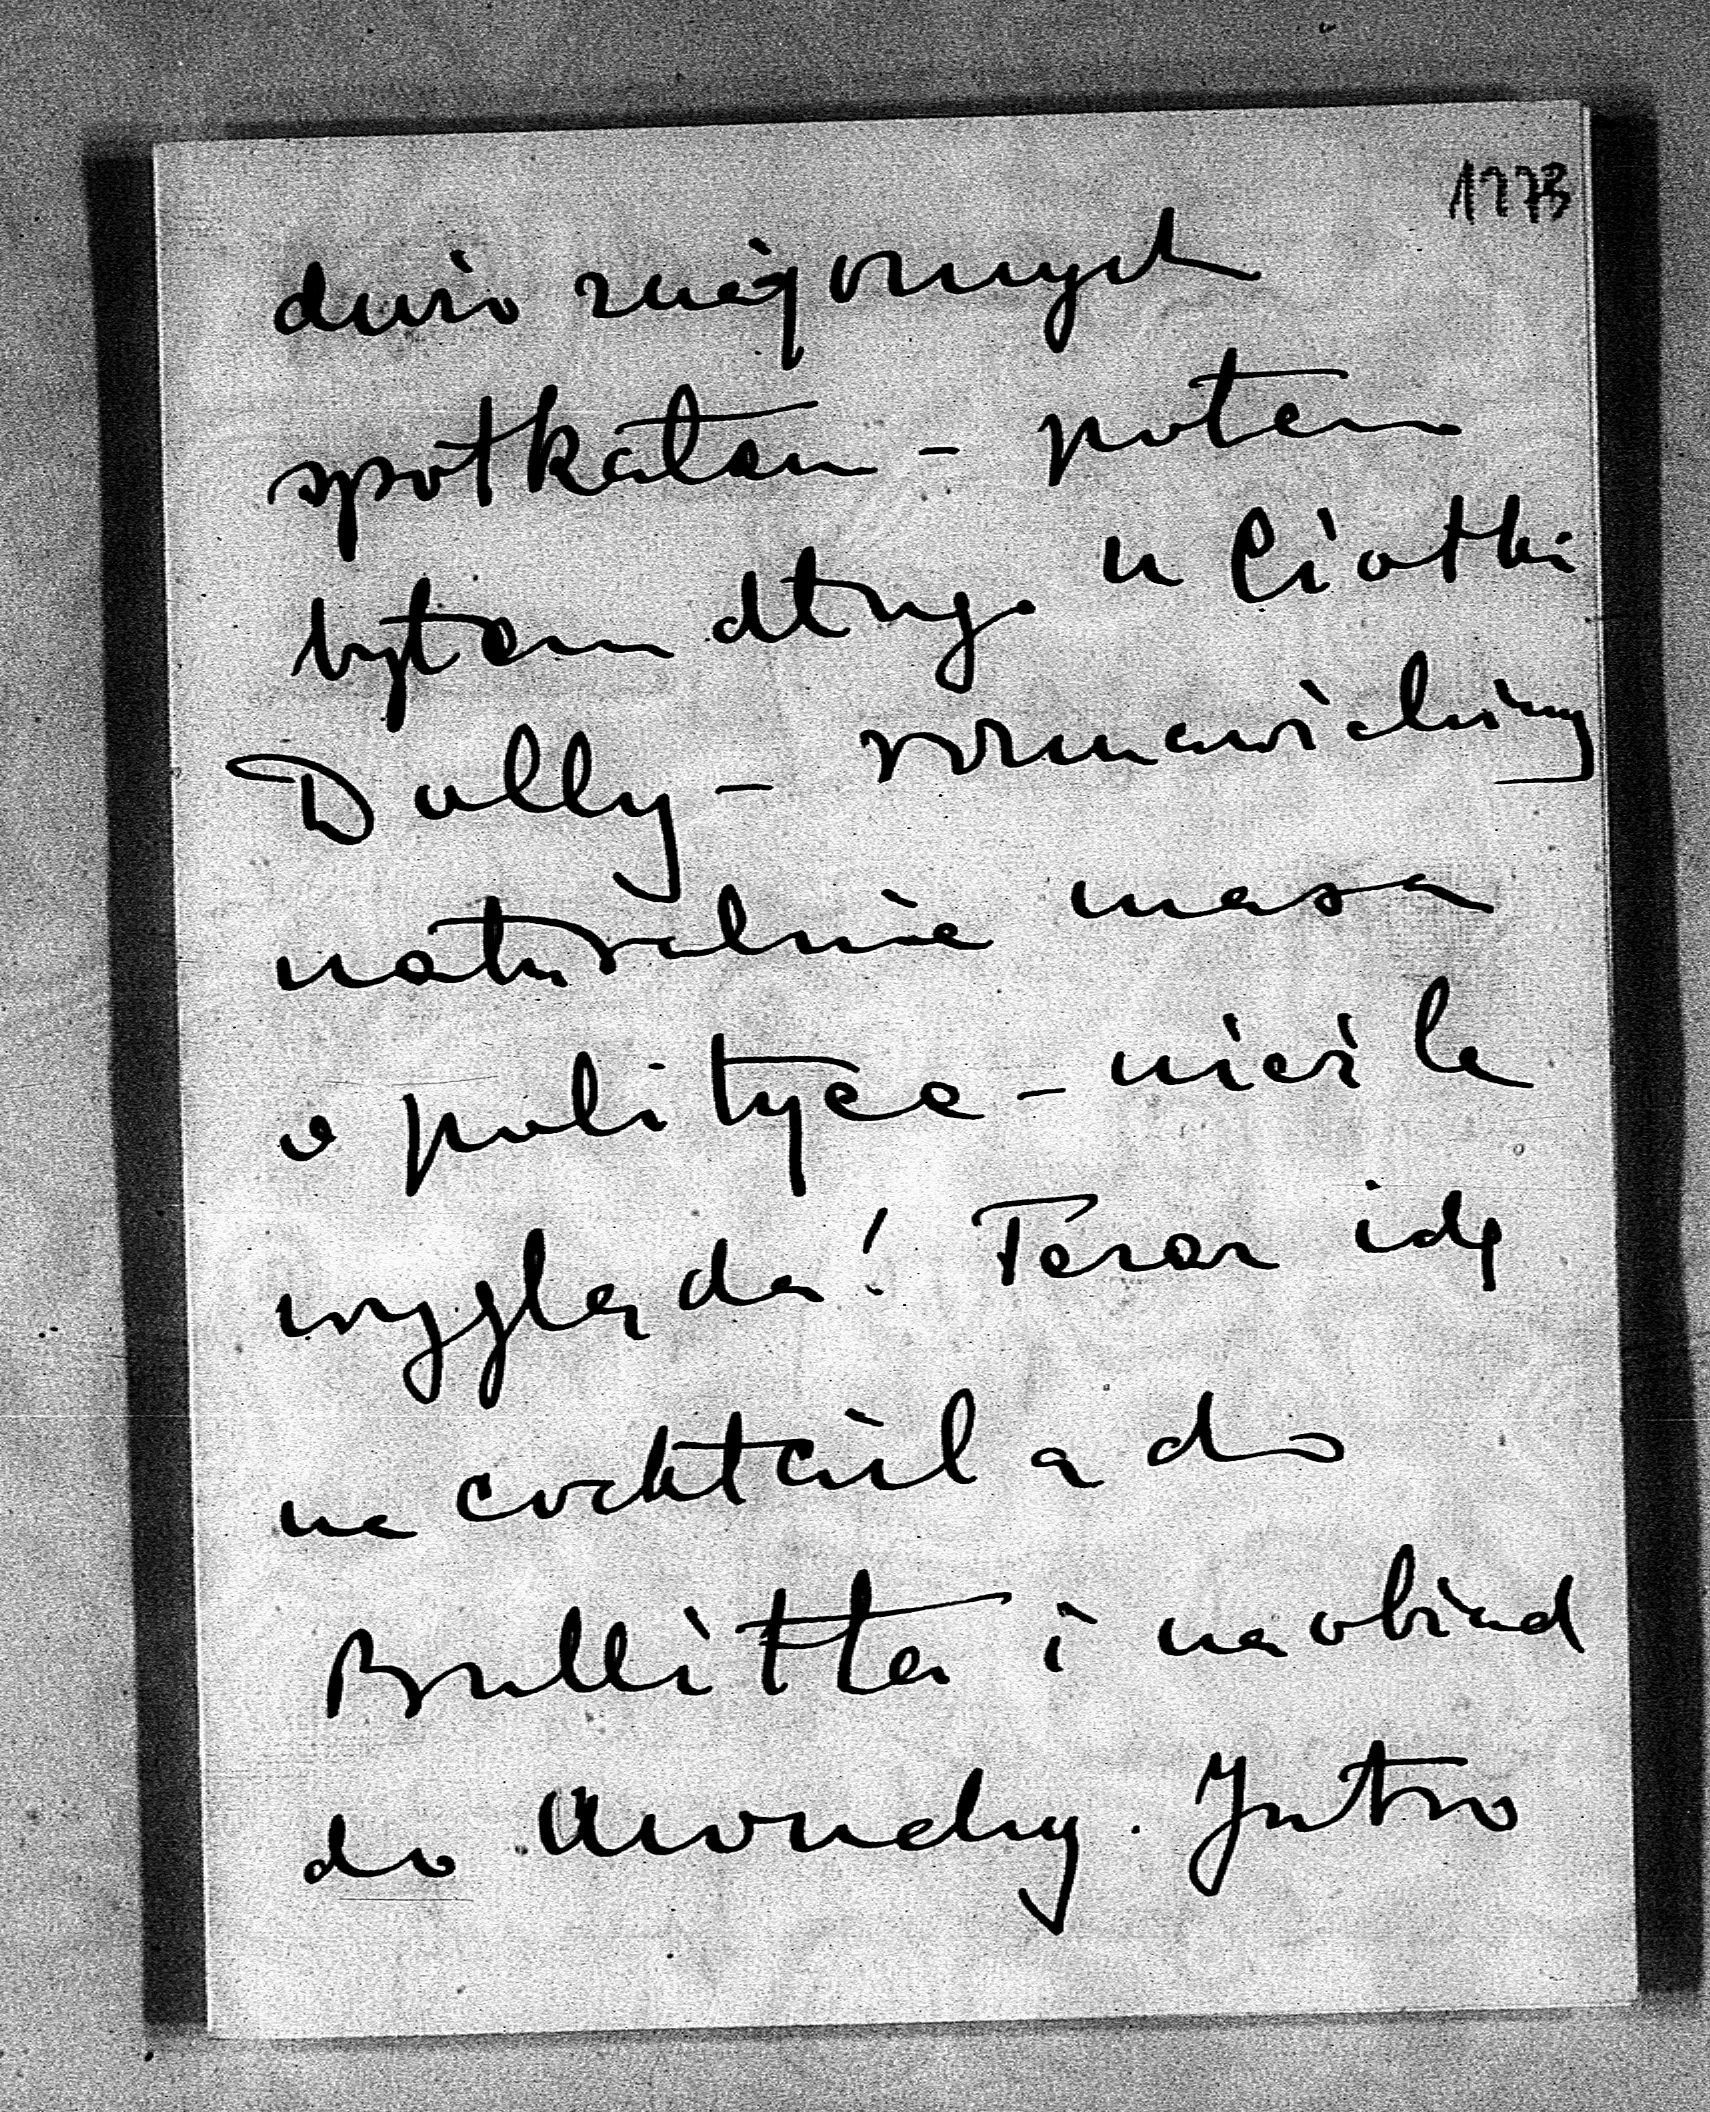 1773
dużo znajomych
spotkałem – potem
byłem długo u Ciotki
Dolly – rozmawialiśmy
naturalnie masa
o polityce – nieźle
wygląda! Teraz idę
na cocktail a do
Bullitta i na obiad
do . Jutro